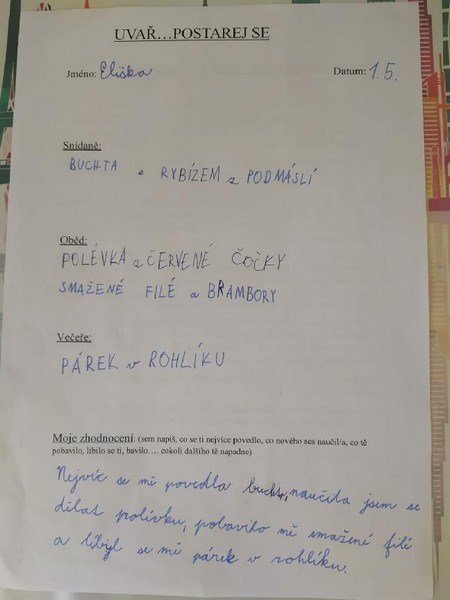 UVAŘ…POSTAREJ SE
Jméno: Eliška Datum: 1.5.
Snídaně:
BUCHTA s RYBÍZEM z PODMÁSLÍ
Oběd:
POLÉVKA z ČERVENÉ ČOČKY
SMAŽENÉ FILÉ a BRAMBORY
Večeře:
PÁREK v ROHLÍKU
Moje zhodnocení: (sem napiš, co se ti nejvíce povedlo, co nového ses naučil/a, co tě
pobavilo, líbilo se ti, bavilo…. cokoli dalšího tě napadne)
Nejvíc se mě povedla buchta, naučila jsem se
dělat polívku, pobavilo mě smažené filé
a líbil se mě párek v rohlíku.